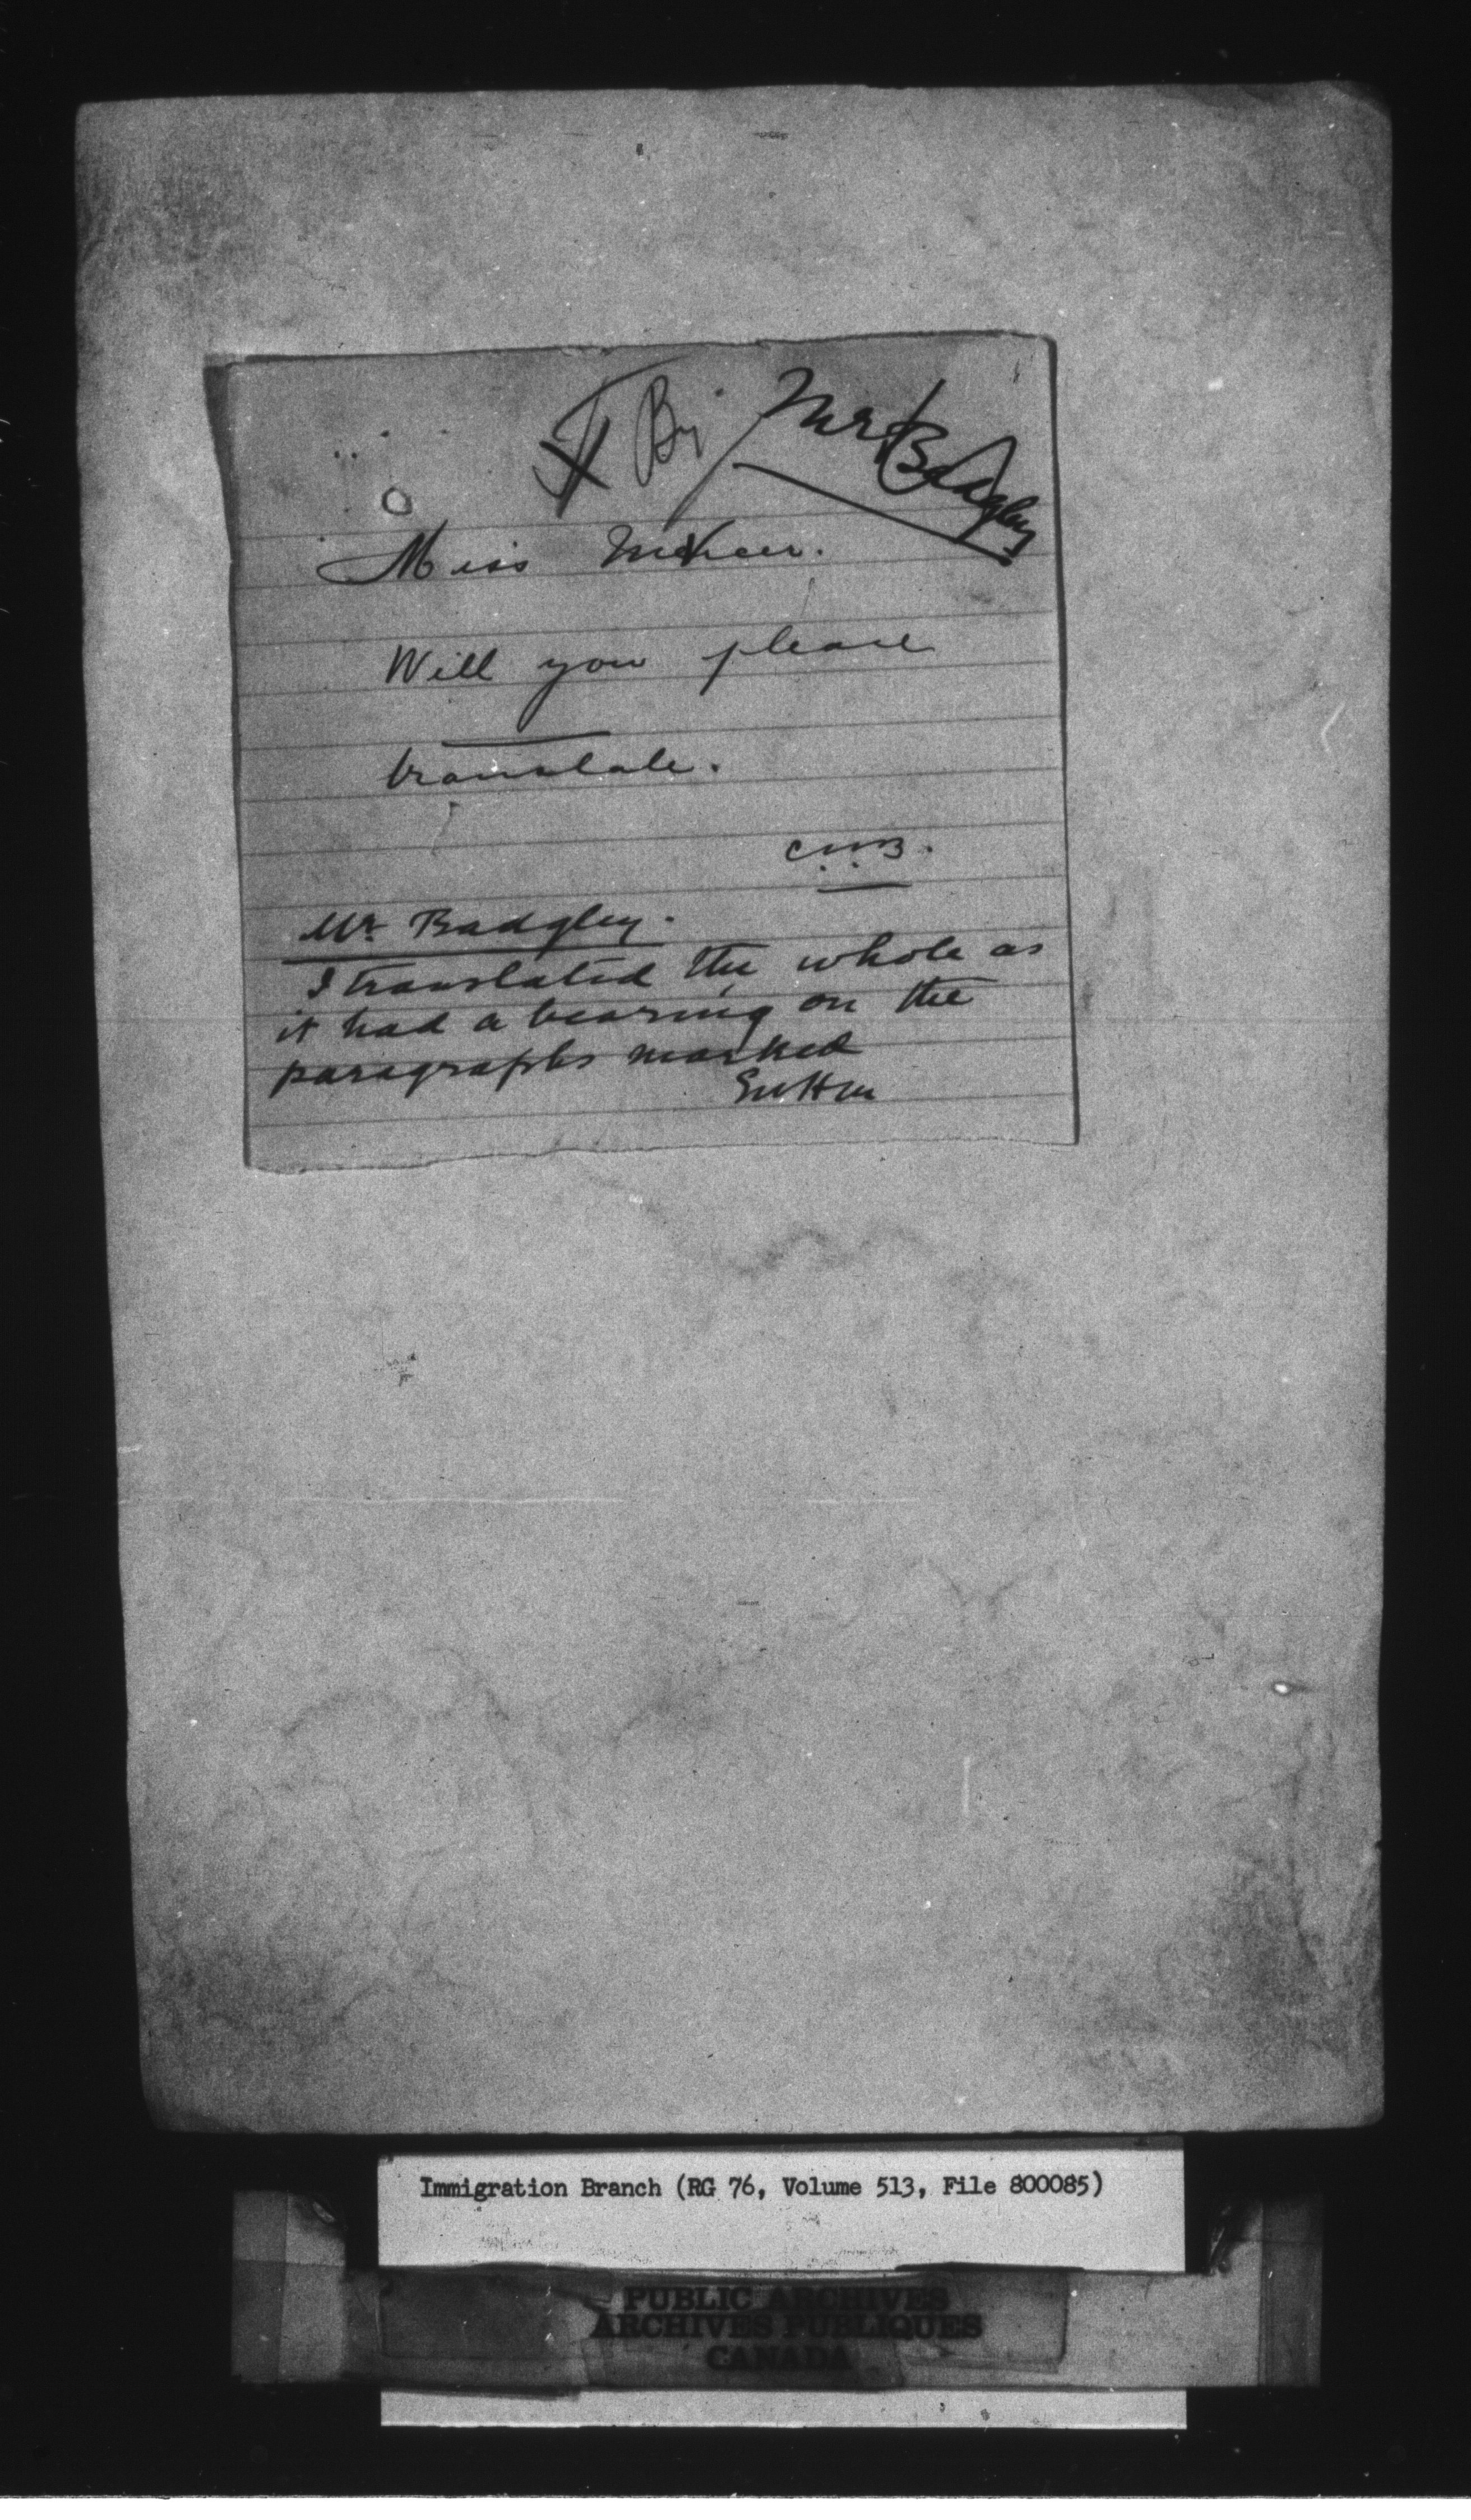 By Mr Badgley
Miss
Will you please
translate.
C.W.B.
Mr. Badgley.
I translated the whole as
it had a bearing on the
paragraphs marked
Immigration Branch (RG 76, Volume 513, File 800085)
PUBLIC ARCHIVES
ARCHIVES PUBLIQUES
CANADA